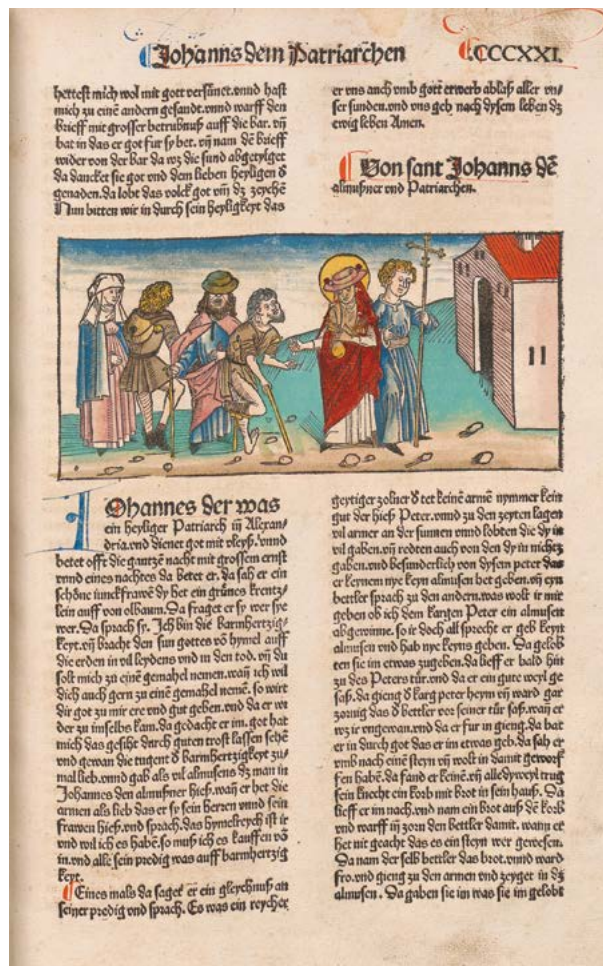 Johanns dem Patriarchen
CCCXXI.
hettest mich wol mit gott versünet.vnnd hast
mich zu einē andern gesandt.vnnd warff den
brieff mit grosser betrubnuß auff die bar. vn̄
bat in das er got fur sy bet. vn̄ nam dē brieff
wider von der bar da wz die sund abgetylget
da dancket sie got vnd dem lieben heyligen d̄
genaden.da lobt das volck got vn̄ dz zeychē
Nun bitten wir in durch sein heyligkeyt das
er vns auch vmb gott erwerb ablaß aller vn-
ser sunden.vnd vns geb nach dysem leben dz
ewig leben Amen.
Von sant Johanns dē
almußner vnd Patriarchen.
Johannes der was
ein heyliger Patriarch in̄ Alexan/
dria.vnd dienet got mit vleyß.vnnd
betet offt die gantzē nacht mit grossem ernst
vnnd eines nachtes da betet er.da sah er ein
schöne iunckfrawē dy het ein grünes krentz/
lein auff von olbaum.Da fraget er sy wer sye
wer.Da sprach sy. Ich bin die barmhertzig/
keyt.vn̄ bracht den sun gottes vō hymel auff
die erden in vil leydens vnd in den tod. vn̄ du
solt mich zu einē gemahel nemen.wan̄ ich wil
dich auch gern zu einē gemahel nemē. so wirt
dir got zu mir ere vnd gut geben.vnd da er wi
der zu imselbs kam.da gedacht er im.got hat
mich das gesiht durch guten trost lassen sehē
vnd gewan die tugent d̄ barmhertzigkeyt zu/
mal lieb.vnnd gab als vil almusens dz man in
Johannes den almußner hieß.wan̄ er het die
armen als lieb das er sy sein herren vnnd sein
frawen hieß.vnd sprach.das hymelreych ist ir
vnd wil ich es habē.so muß ich es kauffen vō
in.vnd alle sein predig was auff barmhertzig
keyt.
Eines mals da saget er ein gleychnuß an
seiner predig vnd sprach. Es was ein reycher
geytiger zolner d̄ tet keinē armē nymmer kein
gut der hieß Peter.vnnd zu den zeyten lagen
vil armer an der sunnen vnnd lobten die dy in
vil gaben.vn̄ redten auch von den dy in nichtz
gaben.vnd besunderlich von dysem peter das
er keynem nye keyn almusen het geben.vn̄ eyn
bettler sprach zu den andern.was wolt ir mir
geben ob ich dem kargen Peter ein almusen
abgewinne.so ir doch all sprecht er geb keyn
almusen vnd hab nye keyns geben. Da gelob
ten sie im etwas zugeben.da lieff er bald hin
zu des Peters tür.vnd da er ein gute weyl ge
saß.da gieng d̄ karg peter heym vn̄ ward gar
zornig das d̄ bettler vor seiner tür saß.wan̄ er
wz ir vngewan.vnd da er fur in gieng.da bat
er in durch got das er im etwas geb.da sah er
vmb nach einē steyn vn̄ wolt in damit geworf
fen habē.da fand er keinē.vn̄ alledyweyl trug
sein knecht ein korb mit brot in sein hauß. Da
lieff er im nach.vnd nam ein brot auß dē korb
vnd warff in̄ zorn den bettler damit. wann er
het nit geacht das es ein steyn wer gewesen.
Da nam der selb bettler das brot.vnnd ward
fro.vnd gieng zu den armen vnd zeyget in dz
almusen. Da gaben sie im was sie im gelobt